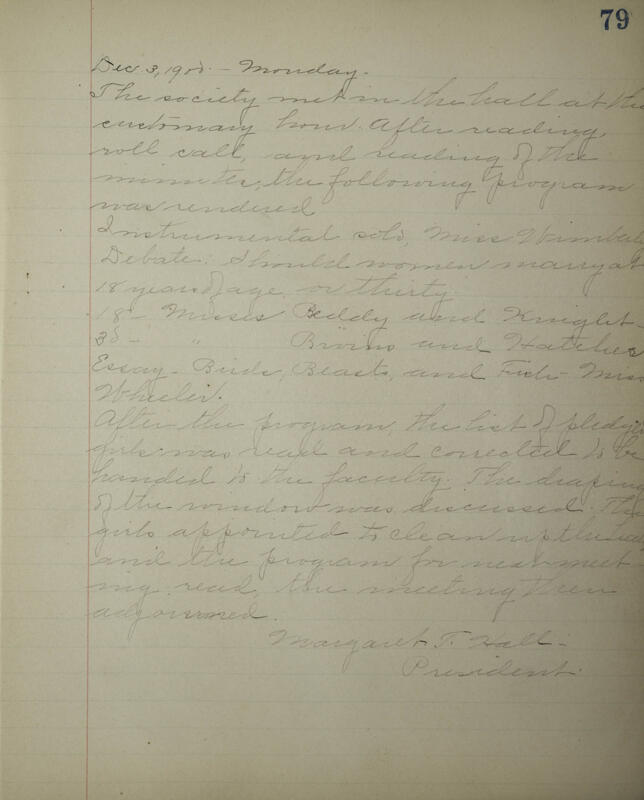 79
Dec 3, 190 - Monday.
The society met in the hall at the
customary hour. After reading,
roll call, and reading of the
minutes, the following program
was rendered
Instrumental solo, Miss
Debate: Should women marry at
18 years of age or thirty
18 - Misses Beddy and Knight
30 - " Bivins and Hatcher
Essay - Birds, Beasts, and Fish - Miss
Wheeler.
After the program, the list of
girls was read and corrected to be
handed to the faculty. The draping
of the window was discussed. The
girls appointed to clean up the hall
and the program for next meet
ing read, the meeting then
adjourned.
Margaret T. Hall -
President.